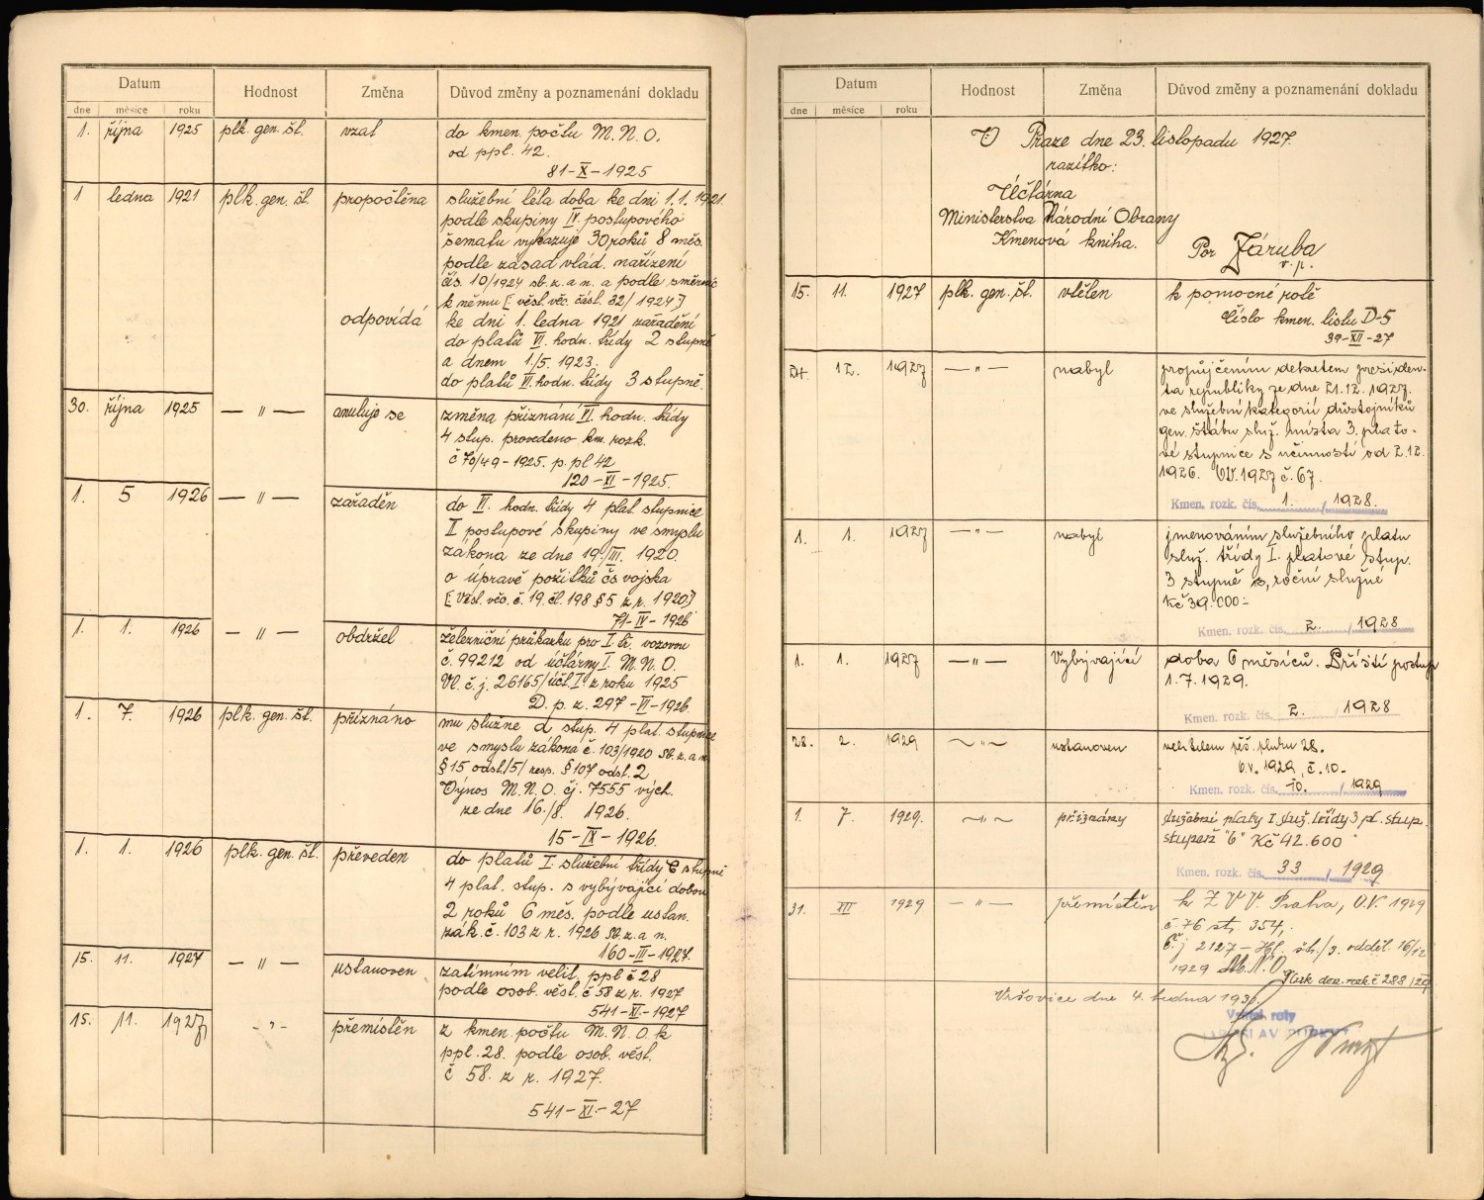 Datum Hodnost Změna Důvod změny a poznamenání dokladu
dne měsíce roku
1. října 1925 plk. gen. št. vzat do kmen. počtu M.N.O.
od ppl. 42.
81-X-1925
1 ledna 1921 plk. gen. št. propočtěna služební léta doba ke dni 1.1.1921
podle skupiny IV. postupového
šematu vykazuje 30 roků 8 měs.
podle zásad vlád. nařízení
čís. 10/1924 sb. z. a n. a podle směrnic
k němu [věst. věc. část. 32/1924]
odpovídá ke dni 1. ledna 1921 zařadění
do platů VI. hodn. třídy 2 stupně
a dnem 1/5. 1923.
do platů VI. hodn. třídy 3 stupně.
30. října 1925 — " — anuluje se změna přiznání VI. hodn. třídy
4 stup. provedeno km. rozk.
č 70/49-1925. p. pl 42
120-XI-1925.
1. 5 1926 — " — zařaděn do VI. hodn. třídy 4 plat. stupnice
II postupové skupiny ve smyslu
zákona ze dne 19./III. 1920
o úpravě požitků čs vojska
[Věst. věc. č. 19. čl. 198 § 5 z r. 1920]
71-IV-1926
1. 1. 1926 — " — obdržel železniční průkazku pro I. tř. vozovou
č. 99212 od účtárny I. M.N.O.
Vl. č. j. 26165/účt. I. z roku 1925
D. p. z. 297-VI-1926.
1. 7. 1926 plk. gen. št. přiznáno mu služne d stup. 4 plat. stupnice
ve smyslu zákona č. 103/1926 sb. z. a n.
§ 15 odst./5/ resp. § 107 odst. 2
Výnos M.N.O. čj. 7555 vých.
ze dne 16./8. 1926.
15-IX-1926.
1. 1. 1926 plk. gen. št. převeden do platů I. služební třídy C stupně
4 plat. stup. s vybývající dobou
2 roků 6 měs. podle ustan.
zák. č. 103 z r. 1926 sb. z. a n.
160-III-1927.
15. 11. 1927 — " — ustanoven zatímním velit. ppl č 28
podle osob. věst. č 58 z r. 1927
541-XI-1927
15. 11. 1927 - " - přemístěn z kmen. počtu M.N.O. k
ppl. 28. podle osob. věst.
č 58. z r. 1927.
541-XI-27
Datum Hodnost Změna Důvod změny a poznamenání dokladu
dne měsíce roku
V Praze dne 23. listopadu 1927.
razítko:
Účtárna
Ministerstva Národní Obrany
Kmenová kniha.
Por Záruba
v. r.
15. 11. 1927 plk. gen. št. vtělen k pomocné rotě
číslo kmen. listu D-5
39-XII-27
12. 1927 — " — nabyl propůjčením dekretem presiden-
ta republiky ze dne 21.12.1927.
ve služební kategorii důstojníků
gen. štábu služ. místa 3. plato-
vé stupnice s účinností od 2.12.
1926. OV. 1927 č. 67.
Kmen. rozk. čís. 1. / 1928.
1. 1. 1927 — " — nabyl jmenováním služebního platu
služ. třídy I. platové stup.
3 stupně roční služné
Kč 39.000.-
Kmen. rozk. čís. 2. / 1928
1. 1. 1927 — " — Vybývající doba 6 měsíců. Příští postup
1.7.1929.
Kmen. rozk. čís. 2. / 1928
28. 2. 1929 — " — ustanoven velitelem pěš. pluku 28.
O.V. 1929, č. 10.
Kmen. rozk. čís. 10. / 1929
1. 7. 1929. — " — přiznány služební platy I. služ. třídy 3 pl. stup.
stupeň "6" Kč 42.600
Kmen. rozk. čís. 33 / 1929
31. VIII 1929 — " — přemístěn k Z V V. Praha, O.V. 1929
č 76 st. 354,
Č. j 2127 - št./3. odděl. 16/
1929 M.N.O.
rozk č 288/29
Vršovice dne 4. ledna
Velitel roty